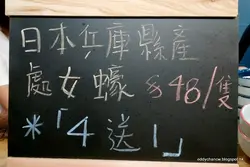 日本兵庫縣産
處女蠔 $48/隻
*「4送1」
eddychanow.blogspot.hk